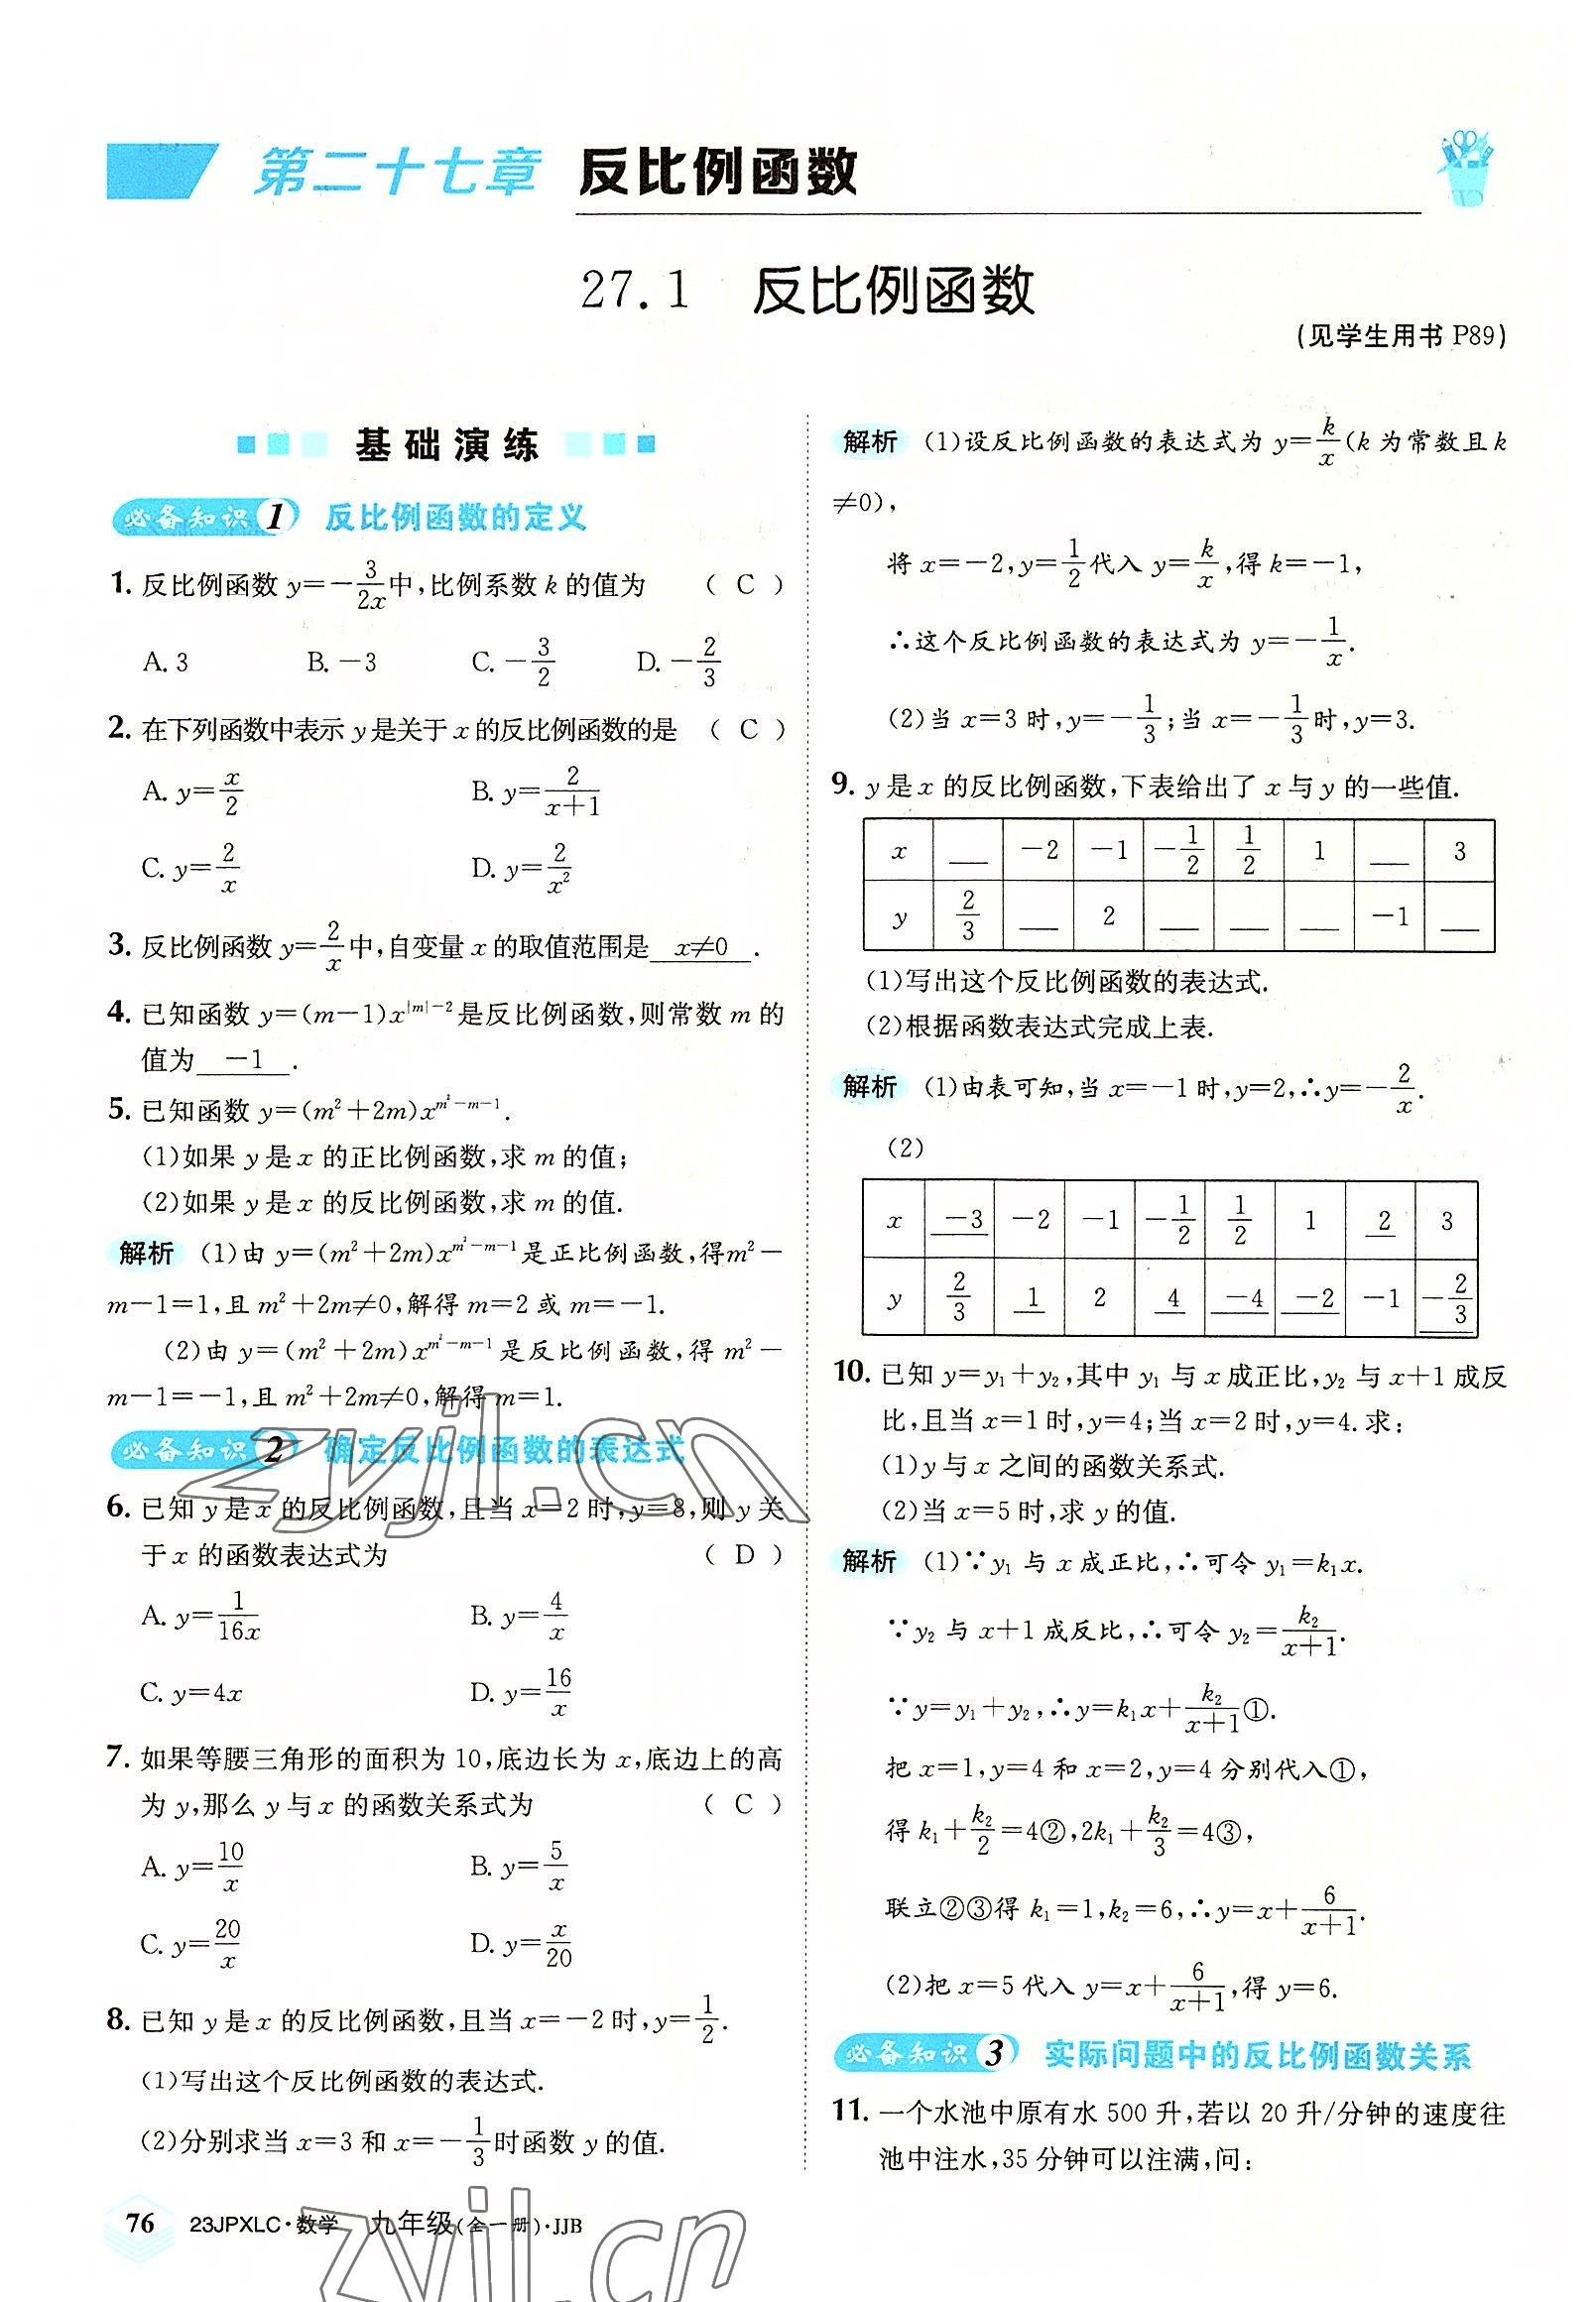 第二十七章 反比例函数
27.1 反比例函数
(见学生用书 P89)
基础演练
必备知识 1 反比例函数的定义
1. 反比例函数 y=-3/(2x)中,比例系数 k 的值为 ( C )
A. 3 B. -3 C. -3/2 D. -2/3
2. 在下列函数中表示 y 是关于 x 的反比例函数的是 ( C )
A. y=x/2 B. y=2/(x+1)
C. y=2/x D. y=2/x²
3. 反比例函数 y=2/x中,自变量 x 的取值范围是 x≠0 .
4. 已知函数 y=(m-1)x^(|m|-2)是反比例函数,则常数 m 的
值为 -1 .
5. 已知函数 y=(m²+2m)x^(m²-m-1).
(1)如果 y 是 x 的正比例函数,求 m 的值;
(2)如果 y 是 x 的反比例函数,求 m 的值.
解析 (1)由 y=(m²+2m)x^(m²-m-1)是正比例函数,得m²-
m-1=1,且 m²+2m≠0,解得 m=2 或 m=-1.
(2)由 y=(m²+2m)x^(m²-m-1)是反比例函数,得 m²-
m-1=-1,且 m²+2m≠0,解得 m=1.
必备知识 2 确定反比例函数的表达式
6. 已知 y 是 x 的反比例函数,且当 x=2 时,y=8,则 y 关
于 x 的函数表达式为 ( D )
A. y=1/(16x) B. y=4/x
C. y=4x D. y=16/x
7. 如果等腰三角形的面积为 10,底边长为 x,底边上的高
为 y,那么 y 与 x 的函数关系式为 ( C )
A. y=10/x B. y=5/x
C. y=20/x D. y=x/20
8. 已知 y 是 x 的反比例函数,且当 x=-2 时,y=1/2.
(1)写出这个反比例函数的表达式.
(2)分别求当 x=3 和 x=-1/3时函数 y 的值.
解析 (1)设反比例函数的表达式为 y=k/x(k 为常数且 k
≠0),
将 x=-2,y=1/2代入 y=k/x,得 k=-1,
∴这个反比例函数的表达式为 y=-1/x.
(2)当 x=3 时,y=-1/3;当 x=-1/3时,y=3.
9. y 是 x 的反比例函数,下表给出了 x 与 y 的一些值.
x __ -2 -1 -1/2 1/2 1 __ 3
y 2/3 __ 2 __ __ __ -1 __
(1)写出这个反比例函数的表达式.
(2)根据函数表达式完成上表.
解析 (1)由表可知,当 x=-1 时,y=2,∴y=-2/x.
(2)
x -3 -2 -1 -1/2 1/2 1 2 3
y 2/3 1 2 4 -4 -2 -1 -2/3
10. 已知 y=y₁+y₂,其中 y₁ 与 x 成正比,y₂ 与 x+1 成反
比,且当 x=1 时,y=4;当 x=2 时,y=4. 求:
(1)y 与 x 之间的函数关系式.
(2)当 x=5 时,求 y 的值.
解析 (1)∵y₁ 与 x 成正比,∴可令 y₁=k₁x.
∵y₂ 与 x+1 成反比,∴可令 y₂=k₂/(x+1).
∵y=y₁+y₂,∴y=k₁x+k₂/(x+1)①.
把 x=1,y=4 和 x=2,y=4 分别代入①,
得 k₁+k₂/2=4②,2k₁+k₂/3=4③,
联立②③得 k₁=1,k₂=6,∴y=x+6/(x+1).
(2)把 x=5 代入 y=x+6/(x+1),得 y=6.
必备知识 3 实际问题中的反比例函数关系
11. 一个水池中原有水 500 升,若以 20 升/分钟的速度往
池中注水,35 分钟可以注满,问:
76 23JPXLC·数学 九年级(全一册)·JJB
zyjl.cn
zyjl.cn